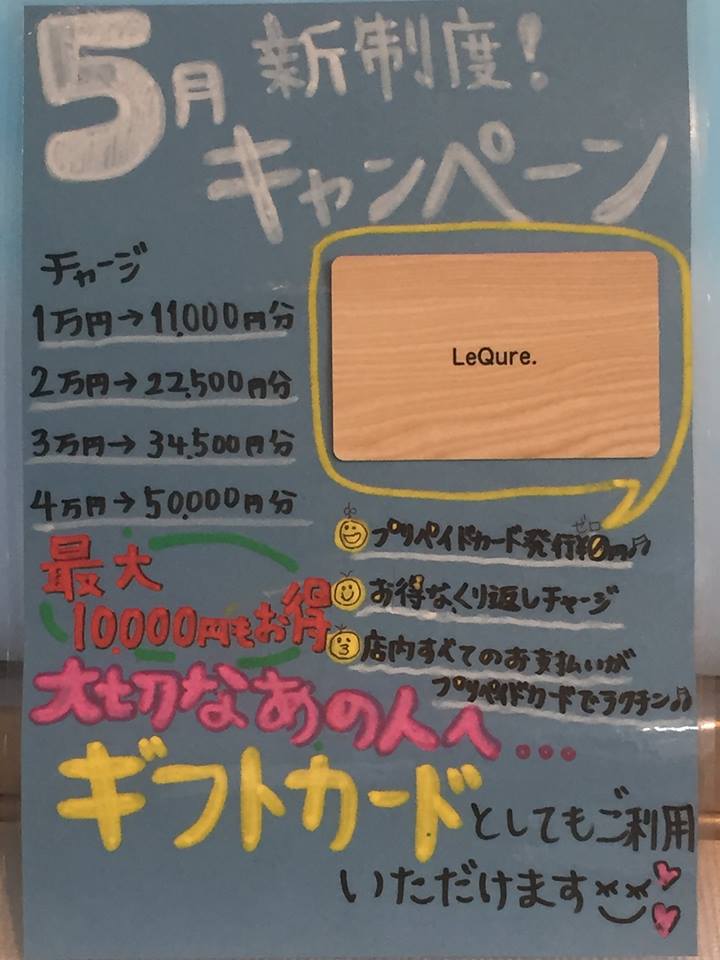 5月 新制度!
キャンペーン
チャージ
1万円→11,000円分
2万円→22,500円分
3万円→34,500円分
4万円→50,000円分
LeQure.
最大
10,000円もお得
ゼロ
プリペイドカード発行¥0円♫
お得なくり返しチャージ
店内すべてのお支払いが
プリペイドカードでラクチン♫
大切なあの人へ...
ギフトカードとしてもご利用
いただけます